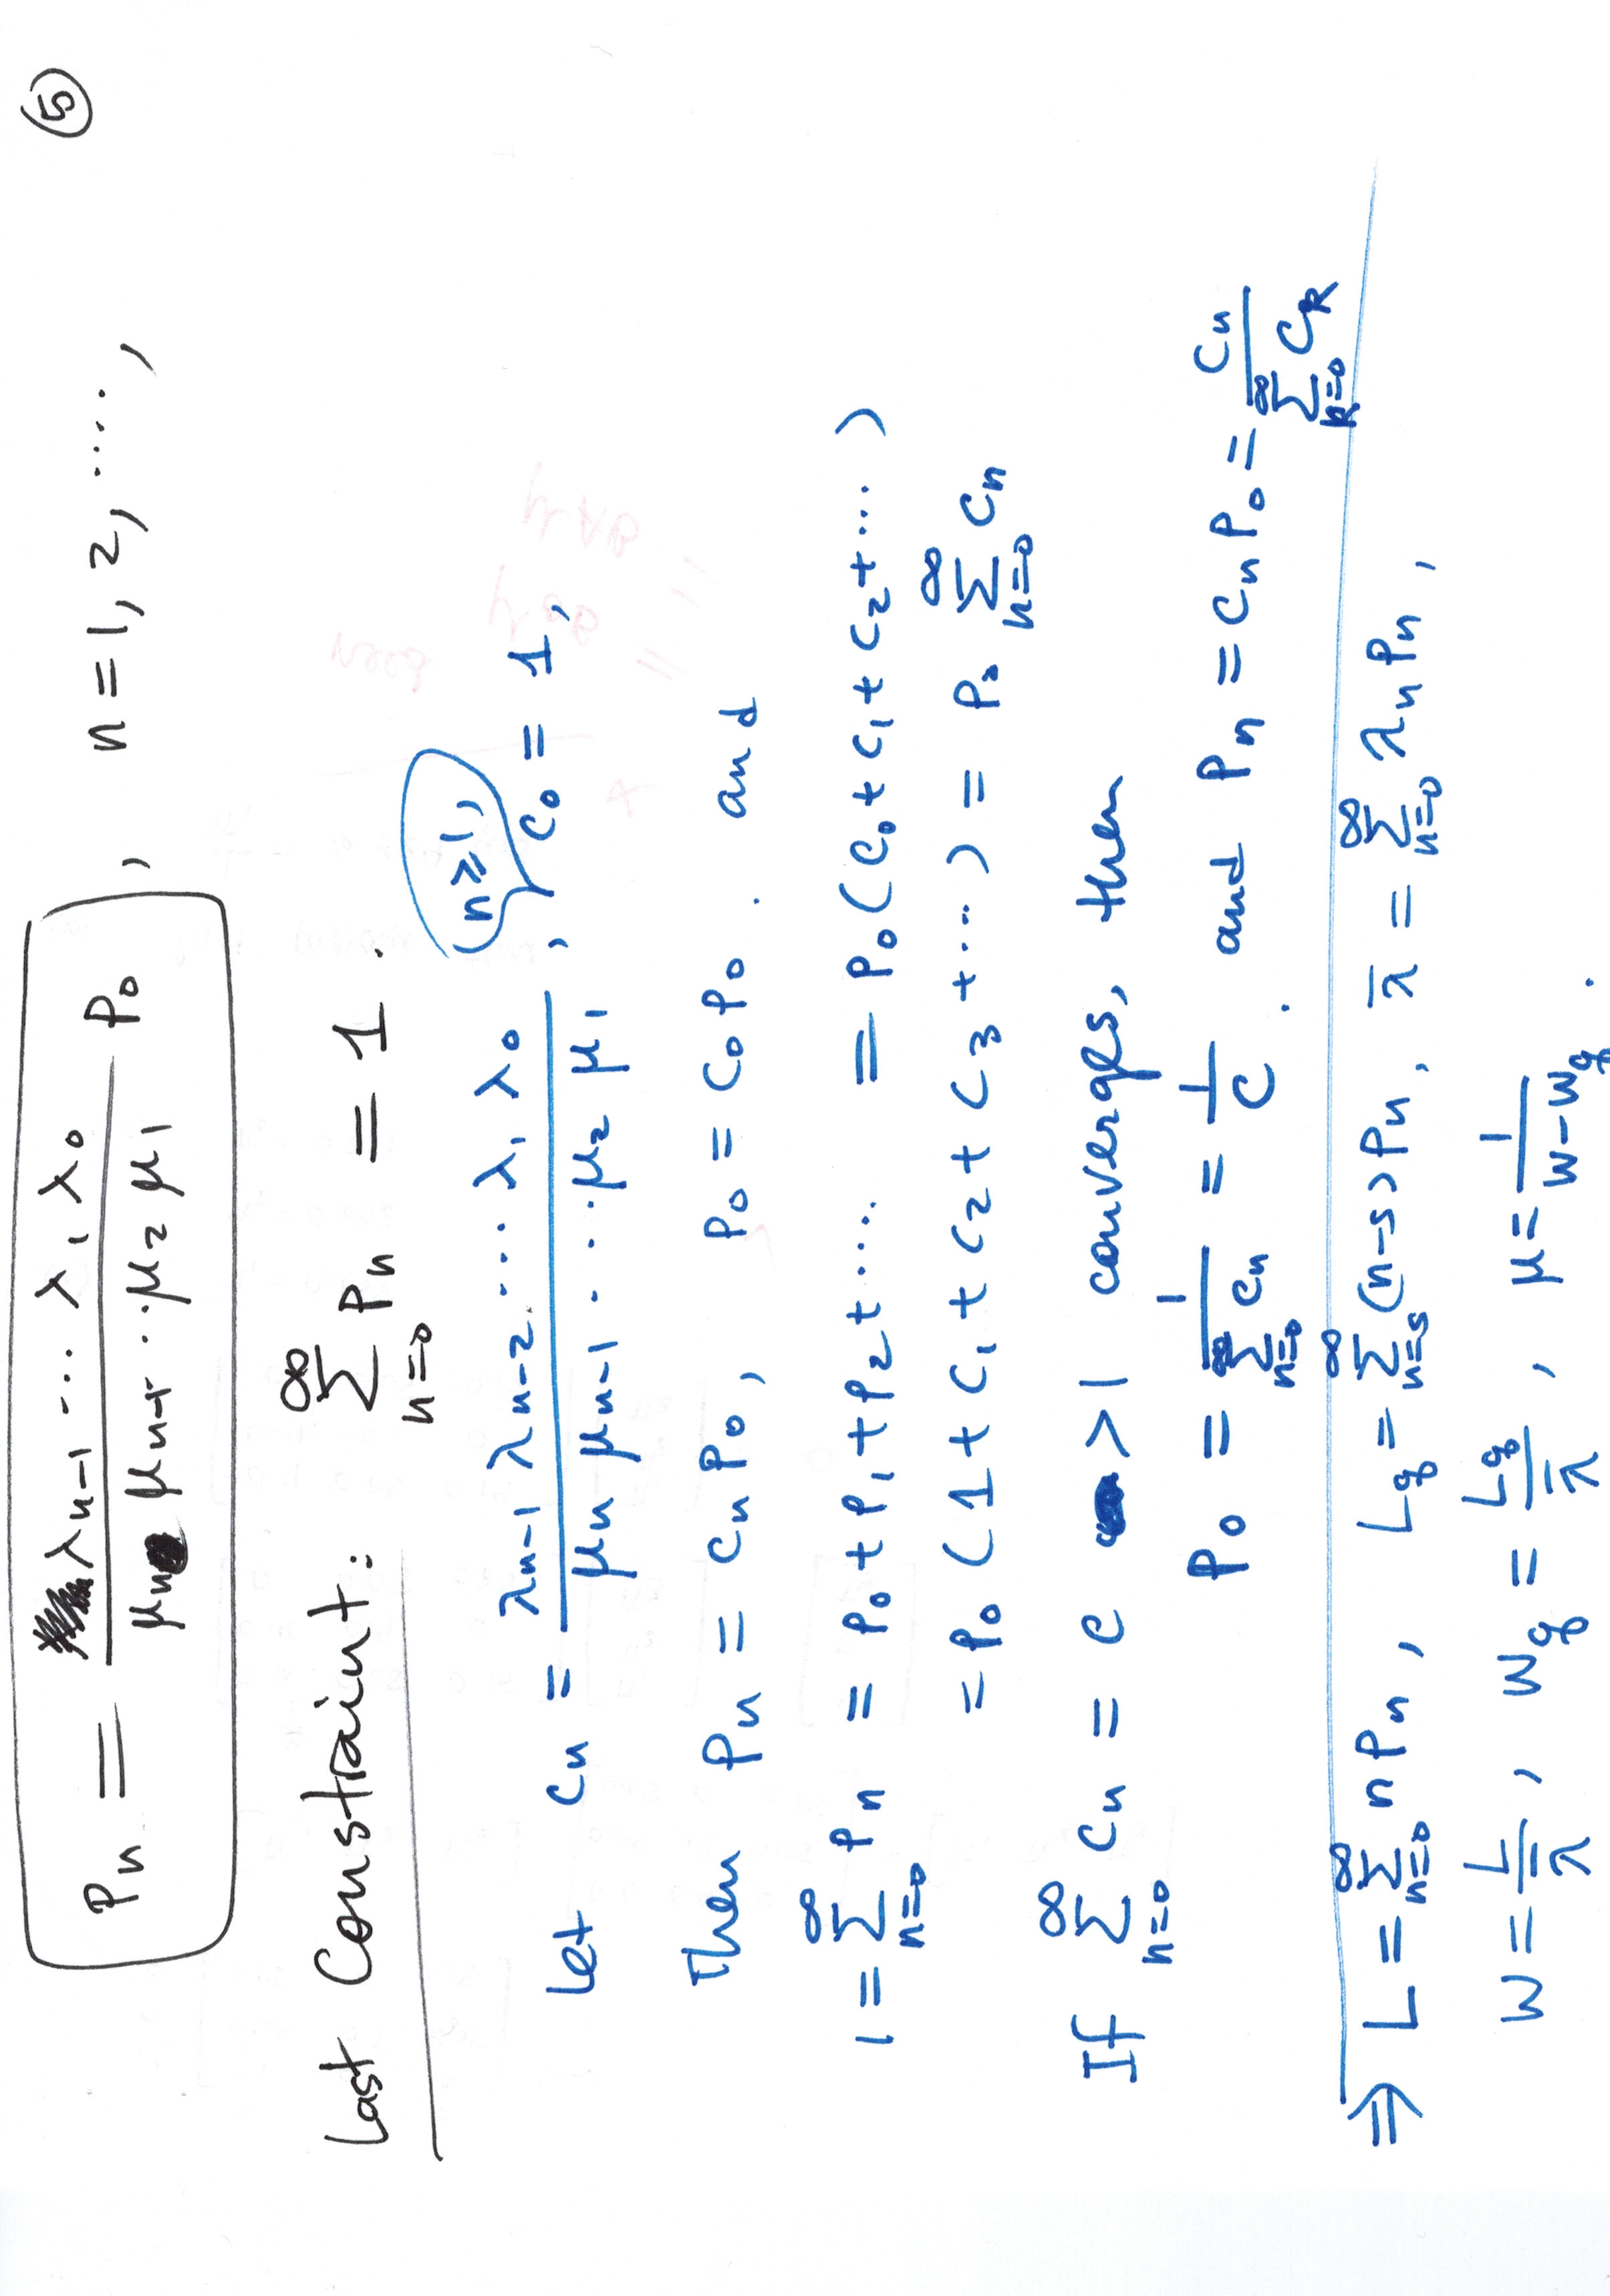 ⑤
Pn = λn-1 ··· λ1 λ0 / μn μn-1 ··· μ2 μ1 P0 , n = 1, 2, ···· ,
Last Constraint: ∑_{n=0}^{∞} Pn = 1 .
(n ≥ 1,)
Let Cn = λn-1 λn-2 ··· λ1 λ0 / μn μn-1 ···· μ2 μ1 , C0 = 1,
Then Pn = Cn P0, P0 = C0 P0 . and
1 = ∑_{n=0}^{∞} Pn = P0 + P1 + P2 + ···· = P0 (C0 + C1 + C2 + ···· )
= P0 (1 + C1 + C2 + C3 + ··· ) = P0 ∑_{n=0}^{∞} Cn
If ∑_{n=0}^{∞} Cn = C > 1 converges, then
P0 = 1 / ∑_{n=0}^{∞} Cn = 1/C . and Pn = Cn P0 = Cn / ∑_{k=0}^{∞} Ck
⇒ L = ∑_{n=0}^{∞} n Pn , Lq = ∑_{n=s}^{∞} (n-s) Pn , λ̄ = ∑_{n=0}^{∞} λn Pn ,
W = L/λ̄ , Wq = Lq/λ̄ , μ = 1/(W-Wq) .